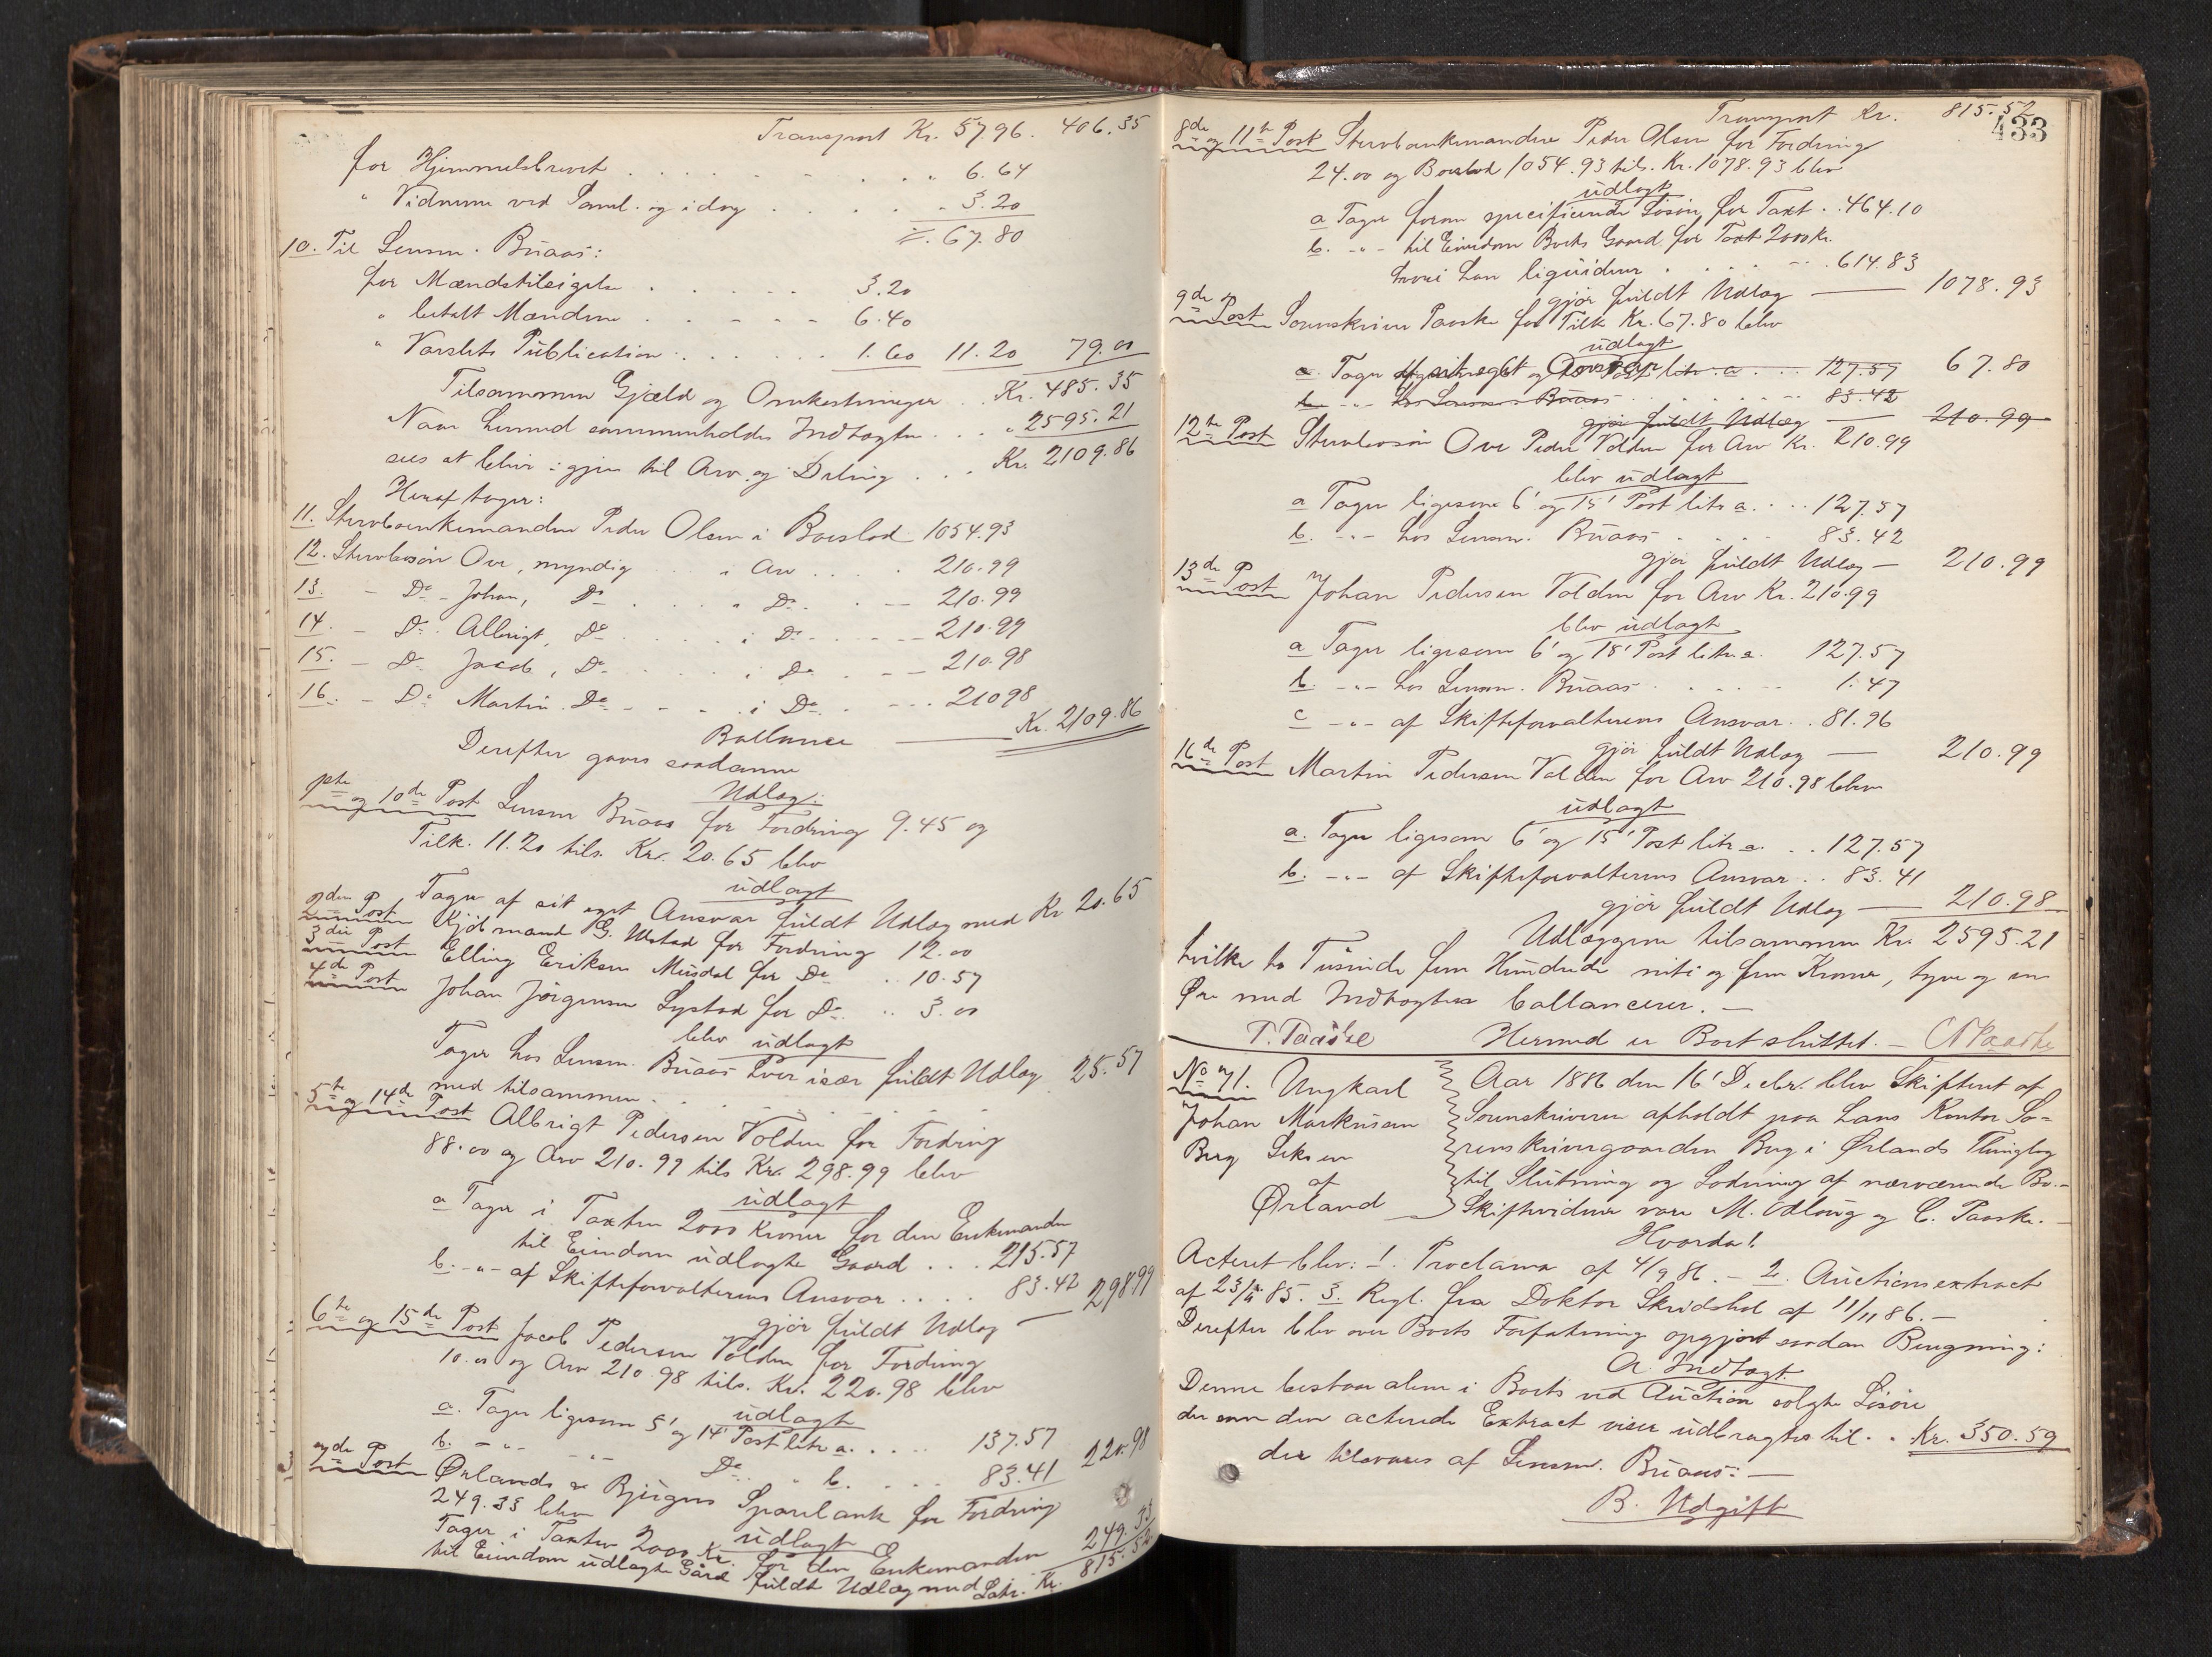 Transport Kr. 57.96. 406.35
for Hjemmelsbrevet . . . . 6.64
" Vidnerne ved Saml. og idag . . . . 3.20
67.80
10. Til Lensm. Buaas:
for Mændstilsigelse . . . . 3.20
" betalt Mændene . . . . 6.40
" Varslets Publication . . . . 1.60 11.20 79.00
Tilsammen Gjæld og Omkostninger . . Kr. 485.35
Naar hermed sammenholdes Indtægten . . . " 2595.21
sees at blive igjen til Arv og Deling . . Kr. 2109.86
Heraf tager:
11. Stervboenkemanden Peder Olsen i Boeslod 1054.93
12. Stervbosøn Ove, myndig . . i Arv . . . 210.99
13. - Do - Johan, Do . . . " Do . . - 210.99
14. - Do Albrigt, Do . . . i Do . . - 210.99
15. - Do Jacob, Do . . . i Do . . - 210.98
16. - Do Martin Do - - - i Do . - - 210 98
Kr. 2109.86
Ballance
Derefter gaves saadanne
Udlæg:
1ste og 10de Post Lensm Buaas for Fordring 9.45 og
Tilk. 11.20 tils. Kr. 20.65 blev
udlagt
Tager af sit eget Ansvar fuldt Udlæg med Kr 20.65
2den Post Kjøbmand G. Ulstad for Fordring 12.00
3die Post Elling Eriksen Musdal for Do . . 10.57
4de Post Johan Jørgensen Lystad for Do . . 3.00
blev udlagt
Tager hos Lensm. Buaas hver især fuldt Udlæg
med tilsammen . . . . 25.57
5te og 14de Post Albrigt Pedersen Volden for Fordring
88.00 og Arv 210.99 tils Kr. 298.99 blev
udlagt
a Tager i Taxten 2000 Kroner for den Enkemanden
til Eiendom udlagte Gaard . . . 215.57
b. - " - af Skifteforvalterens Ansvar . . . . 83.42
gjør fuldt Udlæg — 298 99
6te og 15de Post Jacob Pedersen Volden for Fordring
10.00 og Arv 210.98 tils. Kr. 220.98 blev
udlagt
a. Tager ligesom 5' og 14' Post litr a. . . . 137.57
b. - " - - " - Do " b. . . . 83.41 220.98
7de Post Ørlands og Bjugns Sparebank for Fordring
249.33 blev
udlagt
Tager i Taxten 2000 Kr. for den Enkemanden
til Eiendom udlagte Gård fuldt Udlæg med 249.33
Latr. Kr. 815.52
Transport Kr. 815.52
433
8de og 11te Post Stervboenkemanden Peder Olsen for Fordring
24.00 og Boeslod 1054.93 tils. Kr. 1078.93 blev
udlagt
a Tager foran specificerede Løsøre for Taxt . . 464.10
b. - " - til Eiendom Boets Gaard for Taxt 2000 Kr.
hvori han liqviderer . . . . 614.83
gjør fuldt Udlæg — 1078.93
9de Post Sorenskriver Paaske for Tilk Kr. 67.80 blev
udlagt
a. Tager af sit eget Ansvar 6' og 15' Post litr. a . . . 127.57 67.80
b. - " - hos Lensm. Buaas . . . . 83.42
gjør fuldt Udlæg — 210.99
12te Post Stervbosøn Ove Peder Volden for Arv Kr. 210.99
blev udlagt
a Tager ligesom 6' og 15' Post litr a. . . . 127.57
b. - " - hos Lensm. Buaas . . . . 83.42
gjør fuldt Udlæg — 210.99
13de Post " Johan Pedersen Volden for Arv Kr. 210.99
blev udlagt
a Tager ligesom 6' og 15' Post litr a. 127.57
b. - " - hos Lensm. Buaas . . . . 1.47
c - " - af Skifteforvalterens Ansvar . . 81.96
gjør fuldt Udlæg — 210.99
16de Post Martin Pedersen Volden for Arv 210.98 blev
udlagt
a. Tager ligesom 6' og 15' Post litr a. . . 127.57
b. - " - af Skifteforvalterens Ansvar . . 83.41
gjør fuldt Udlæg — 210.98
Udlæggene tilsammen Kr. 2595.21
hvilke to Tusinde fem Hundrede niti og fem Kroner, tyve og en
Øre med Indtægten ballancerer. —
P. Paaske Hermed er Boet sluttet. — C. Paaske
No 71. Ungkarl
Johan Markusen
Berg Seksen
af
Ørland
Aar 1886 den 16' Decbr. blev Skifteret af
Sorenskriveren afholdt paa hans Kontor So-
renskrivergaarden Berg i Ørlands Thinglag
til Slutning og Lodning af nærværende Bo. -
Skiftevidner vare M. Odlaug og C. Paaske. -
Hvorda!
Acteret blev: 1. Proclama af 4/9 86. — 2. Auctionsextract
af 23/11 85. 3. Regl. fra Doktor Skridshol af 11/11 86. —
Derefter blev over Boets Forfatning opgjort saadan Beregning:
A. Indtægt.
Denne bestaar alene i Boets ved Auction solgte Løsøre
der som den acterede Extract viser udbragtes til . . Kr. 350.59
der tilsvares af Lensm. Buaas: —
B. Udgift